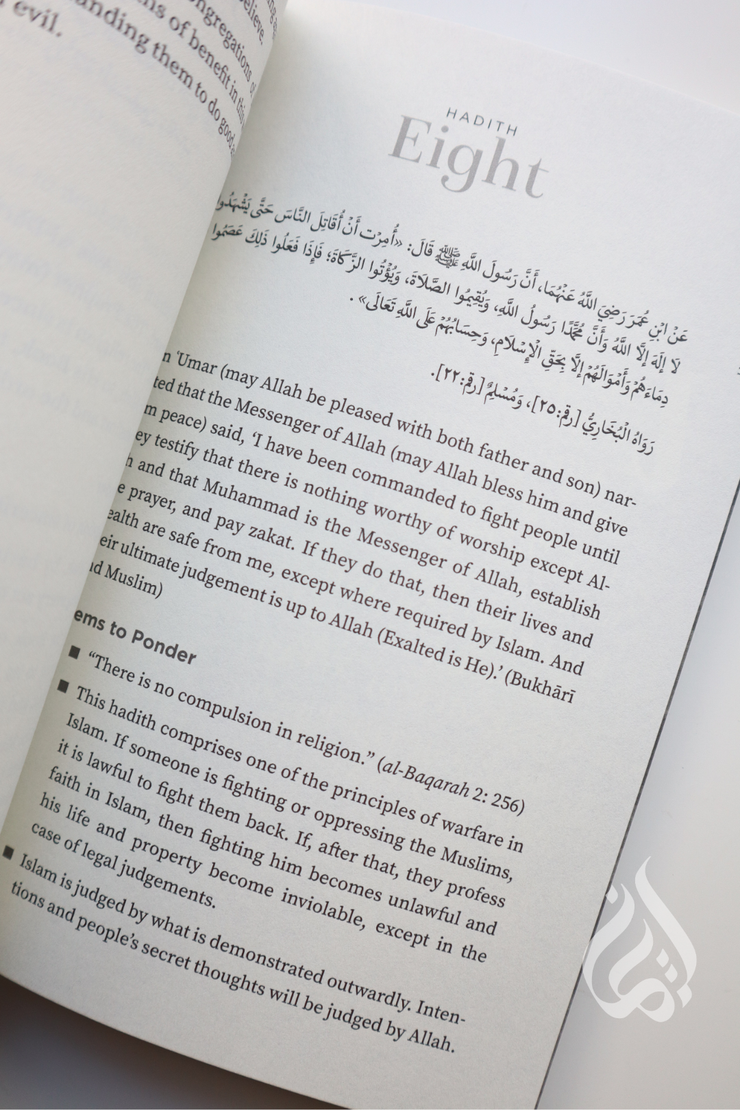 ngregations o
ns of benefit in this
anding them to do good
evil.
HADITH
Eight
عَنْ ابْنِ عُمَرَ رَضِيَ اللَّهُ عَنْهُمَا، أَنَّ رَسُولَ اللَّهِ ﷺ قَالَ: «أُمِرْت أَنْ أُقَاتِلَ النَّاسَ حَتَّى يَشْهَدُوا
لَا إلَهَ إلَّا اللَّهُ وَأَنَّ مُحَمَّدًا رَسُولُ اللَّهِ، وَيُقِيمُوا الصَّلَاةَ، وَيُؤْتُوا الزَّكَاةَ؛ فَإِذَا فَعَلُوا ذَلِكَ عَصَمُوا
دِمَاءَهُمْ وَأَمْوَالَهُمْ إلَّا بِحَقِّ الْإِسْلَامِ، وَحِسَابُهُمْ عَلَى اللَّهِ تَعَالَى» .
رَوَاهُ الْبُخَارِيُّ [رقم:٢٥]، وَمُسْلِمٌ [رقم:٢٢].
n ʿUmar (may Allah be pleased with both father and son) nar-
ted that the Messenger of Allah (may Allah bless him and give
m peace) said, ‘I have been commanded to fight people until
ey testify that there is nothing worthy of worship except Al-
h and that Muhammad is the Messenger of Allah, establish
e prayer, and pay zakat. If they do that, then their lives and
ealth are safe from me, except where required by Islam. And
eir ultimate judgement is up to Allah (Exalted is He).’ (Bukhārī
nd Muslim)
ems to Ponder
■ “There is no compulsion in religion.” (al-Baqarah 2: 256)
■ This hadith comprises one of the principles of warfare in
Islam. If someone is fighting or oppressing the Muslims,
it is lawful to fight them back. If, after that, they profess
faith in Islam, then fighting him becomes unlawful and
his life and property become inviolable, except in the
case of legal judgements.
■ Islam is judged by what is demonstrated outwardly. Inten-
tions and people’s secret thoughts will be judged by Allah.